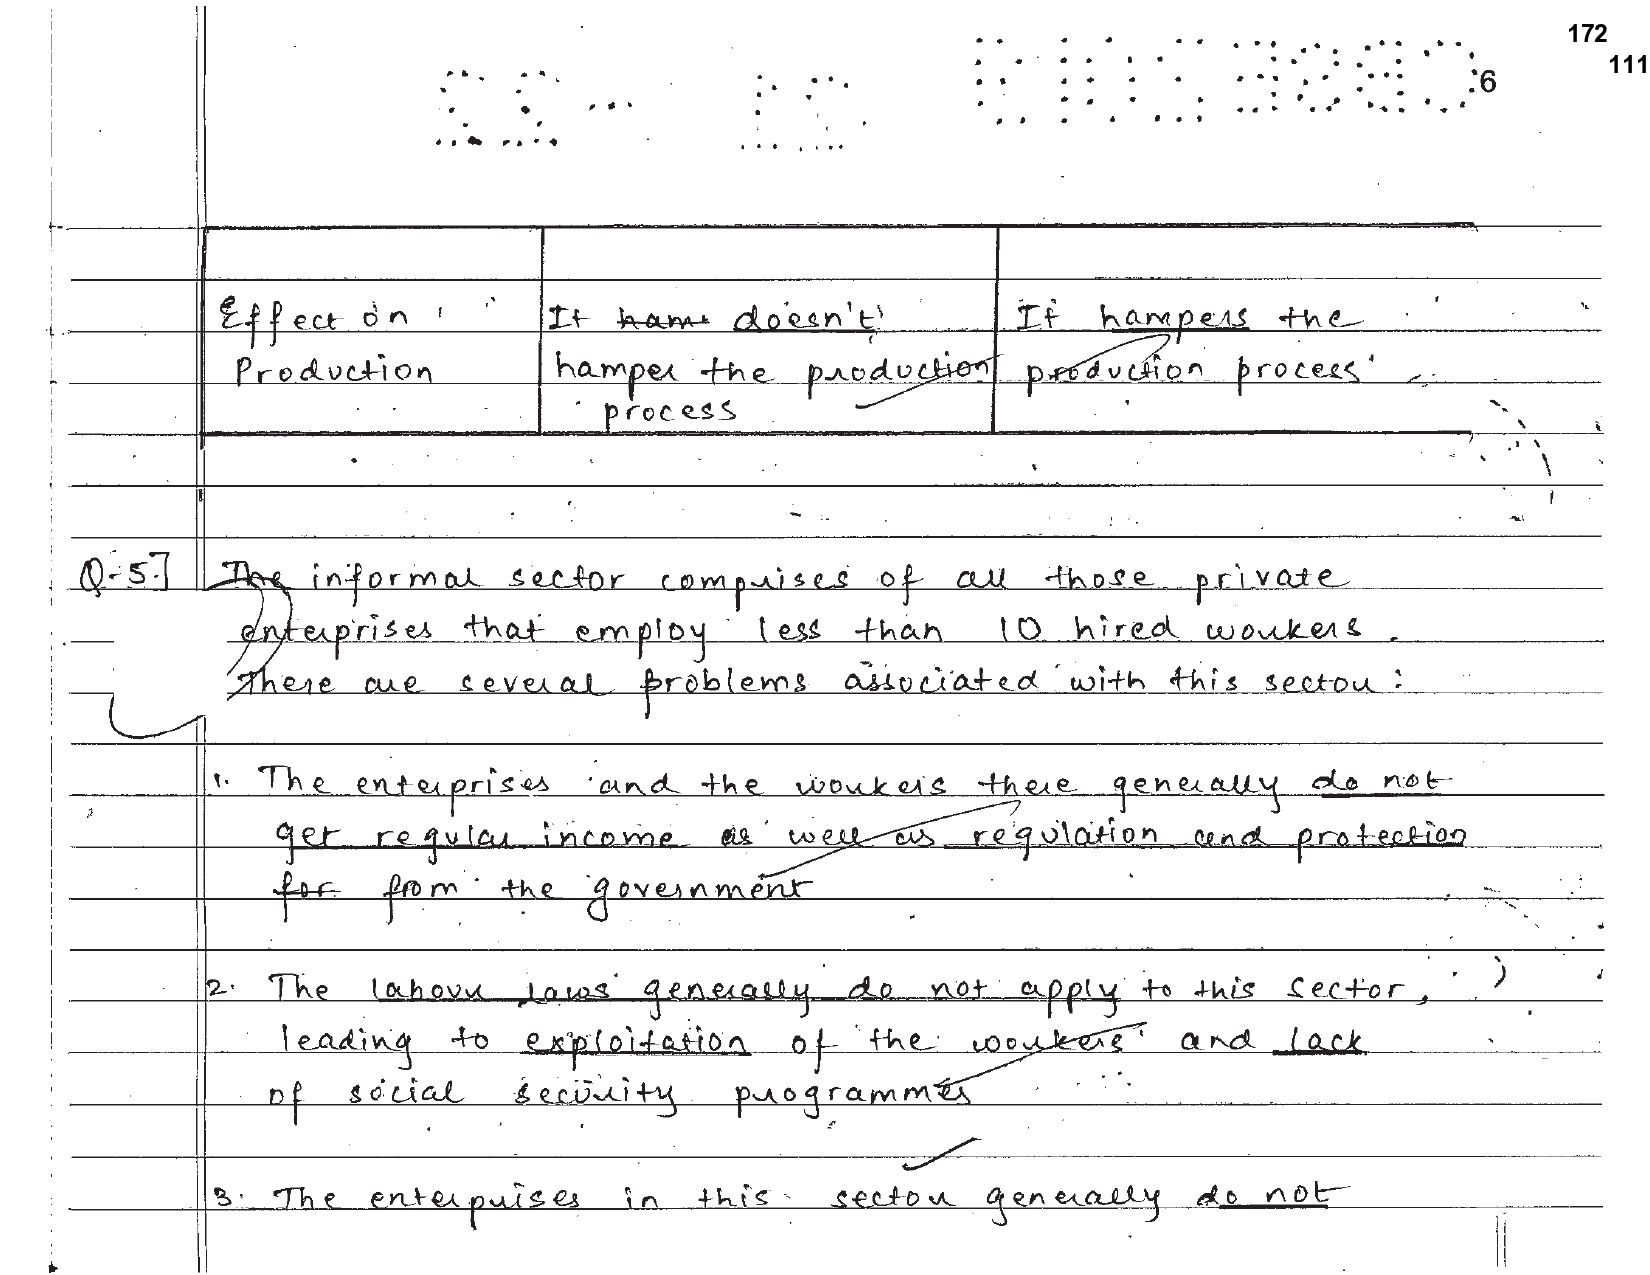 172
111
6
Effect on It ham doesn't It hampers the
Production hamper the production production process
process
Q-5.] The informal sector comprises of all those private
enterprises that employ less than 10 hired workers.
There are several problems associated with this sector:
1. The enterprises and the workers there generally do not
get regular income as well as regulation and protection
for from the government
2. The labour laws generally do not apply to this sector,
leading to exploitation of the workers and lack
of social security programmes
3. The enterprises in this sector generally do not